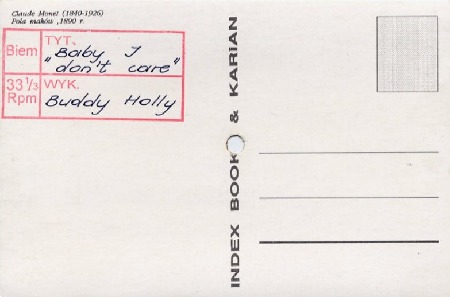 Claude Monet (1840-1926)
Pola maków ,1890 r.
Biem
TYT.
"Baby I
don't care"
33 1/3
Rpm
WYK.
Buddy Holly
INDEX BOOK & KARIAN